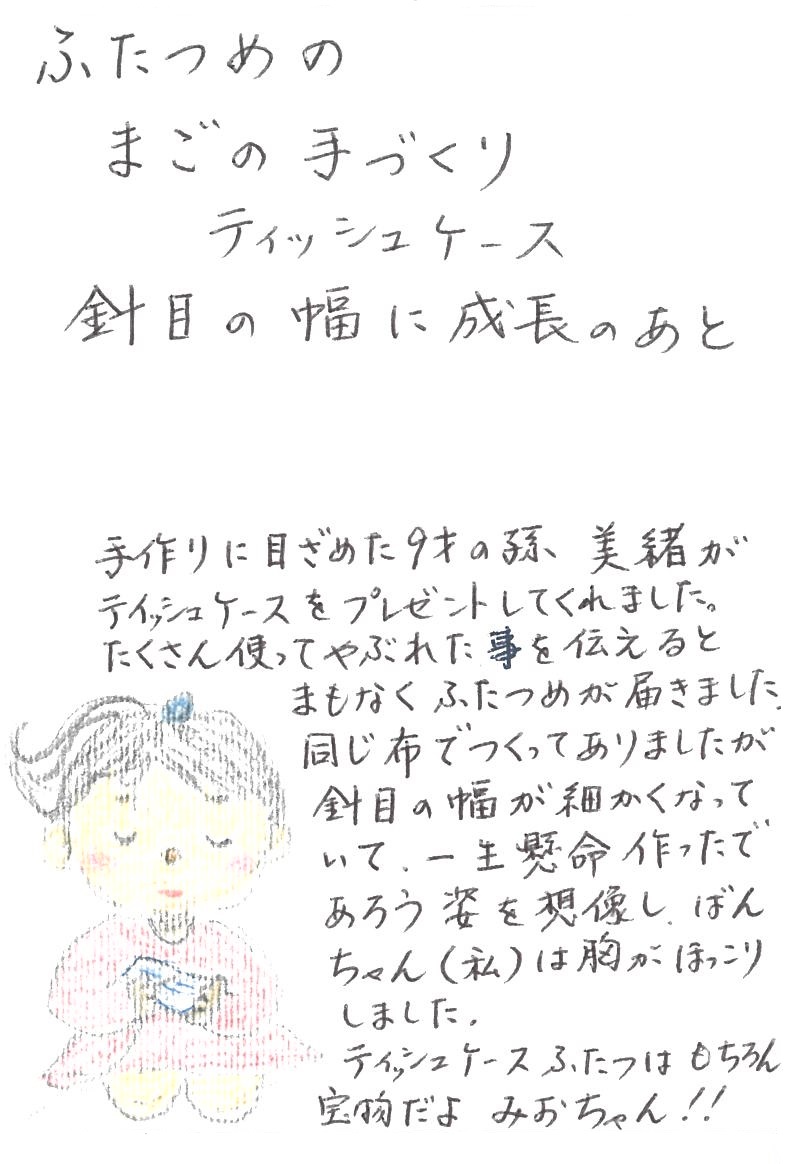 ふたつめの
まごの手づくり
ティッシュケース
針目の幅に成長のあと
手作りに目ざめた9才の孫、美緒が
ティッシュケースをプレゼントしてくれました。
たくさん使ってやぶれた事を伝えると
まもなくふたつめが届きました。
同じ布でつくってありましたが
針目の幅が細かくなって
いて、一生懸命作ったで
あろう姿を想像し、ばん
ちゃん(私)は胸がほっこり
しました。
ティッシュケースふたつはもちろん
宝物だよ みおちゃん!!